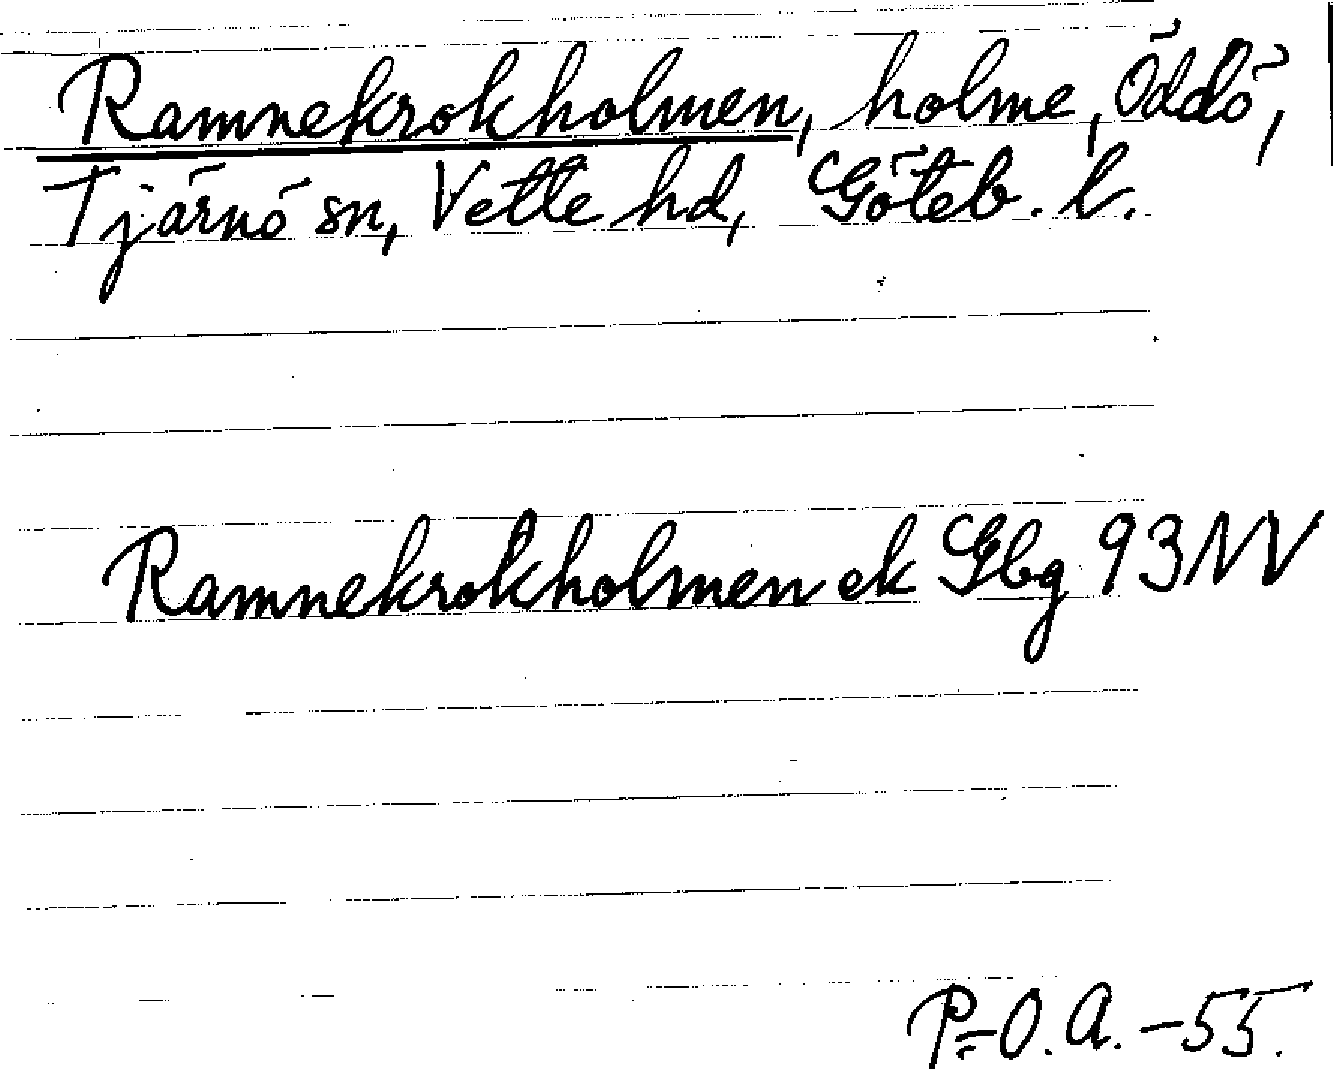 Ramnekrokholmen, holme, Öddö,
Tjärnö sn, Vette hd, Göteb. l.
Ramnekrokholmen ek Gbg 93 NV
P-O. A. -55.